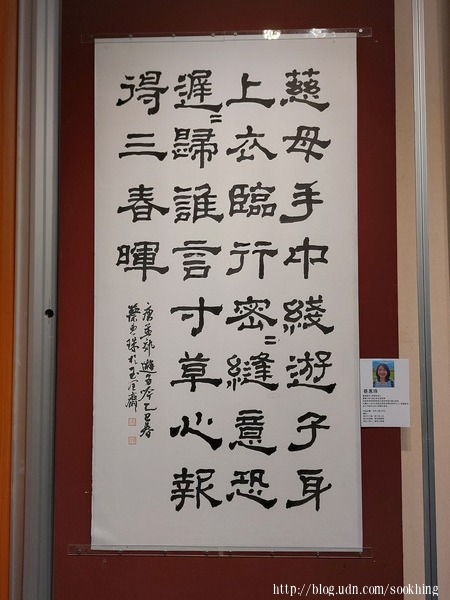 慈母手中綫遊子身
上衣臨行密〻縫意恐
遲〻歸誰言寸草心報
得三春暉
唐孟郊遊子吟乙巳春
蔡惠珠於玉
蔡惠珠
http://blog.udn.com/sookhing